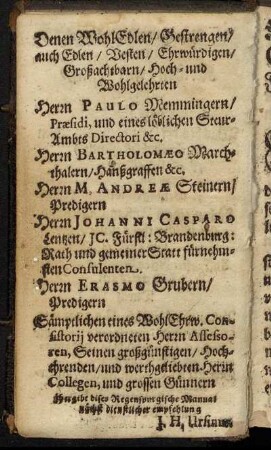 Denen WohlEdlen/ Gestrengen/
auch Edlen / Vesten / Ehrwürdigen/
Großachtbarn/ Hoch- und
Wohlgelehrten
Herrn PAULO Memmingern/
Præsidi, und eines löblichen Steur-
Ambts Directori &c.
Herrn BARTHOLOMÆO March-
thalern/ Hanßgraffen &c.
Herrn M. ANDREÆ Steinern/
Predigern
Herrn JOHANNI CASPARO
Lentzen/ JC. Fürstl: Brandenburg:
Rath und gemeiner Statt fürnehm-
sten Consulenten.
Herrn ERASMO Grubern/
Predigern
Sämptlichen eines WohlEhrw. Con-
sistorij verordneten Herrn Assesso-
ren, Seinen großgünstigen/ Hoch-
ehrenden/ und werthgeliebten Herrn
Collegen, und grossen Günnern
übergibt dises Regenspurgische Manual
nächst dienstlicher empfehlung
J. H. Ursinus.